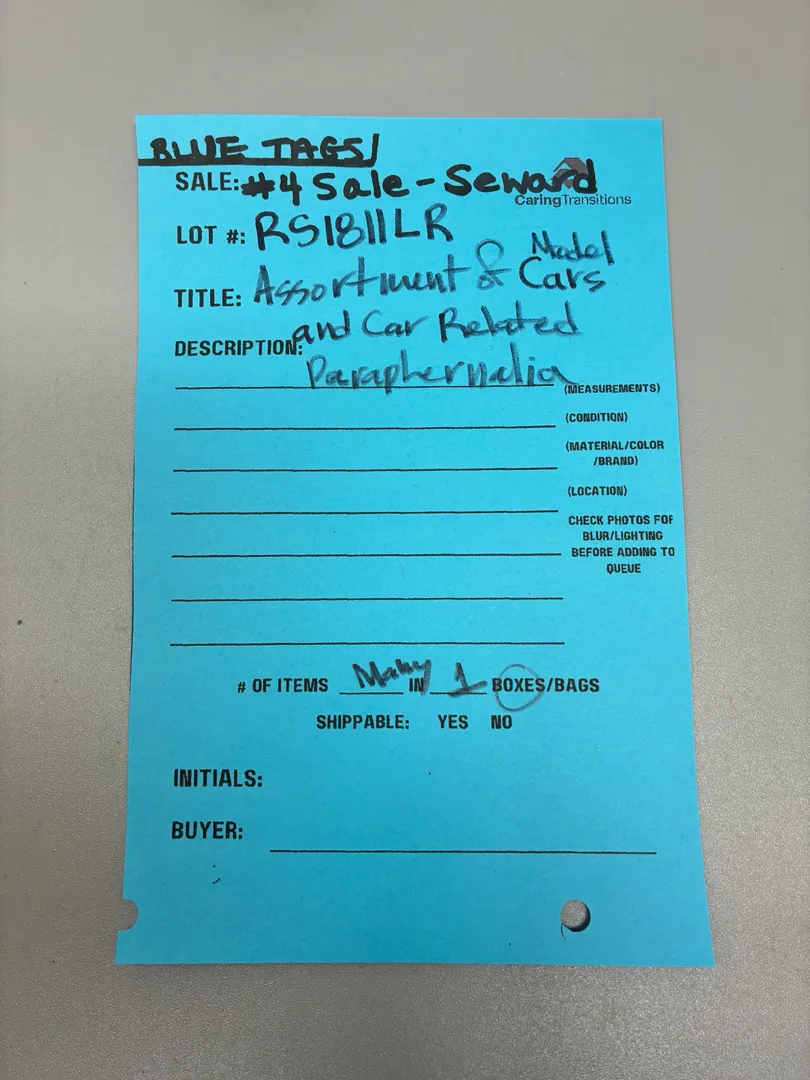 BLUE TAGS
SALE: #4 Sale - Seward
CaringTransitions
LOT #: RS1811LR
TITLE: Assortment of Model Cars
and Car Related
DESCRIPTION: Paraphernalia
(MEASUREMENTS)
(CONDITION)
(MATERIAL/COLOR
/BRAND)
(LOCATION)
CHECK PHOTOS FOR
BLUR/LIGHTING
BEFORE ADDING TO
QUEUE
# OF ITEMS Many IN 1 BOXES/BAGS
SHIPPABLE: YES NO
INITIALS:
BUYER: